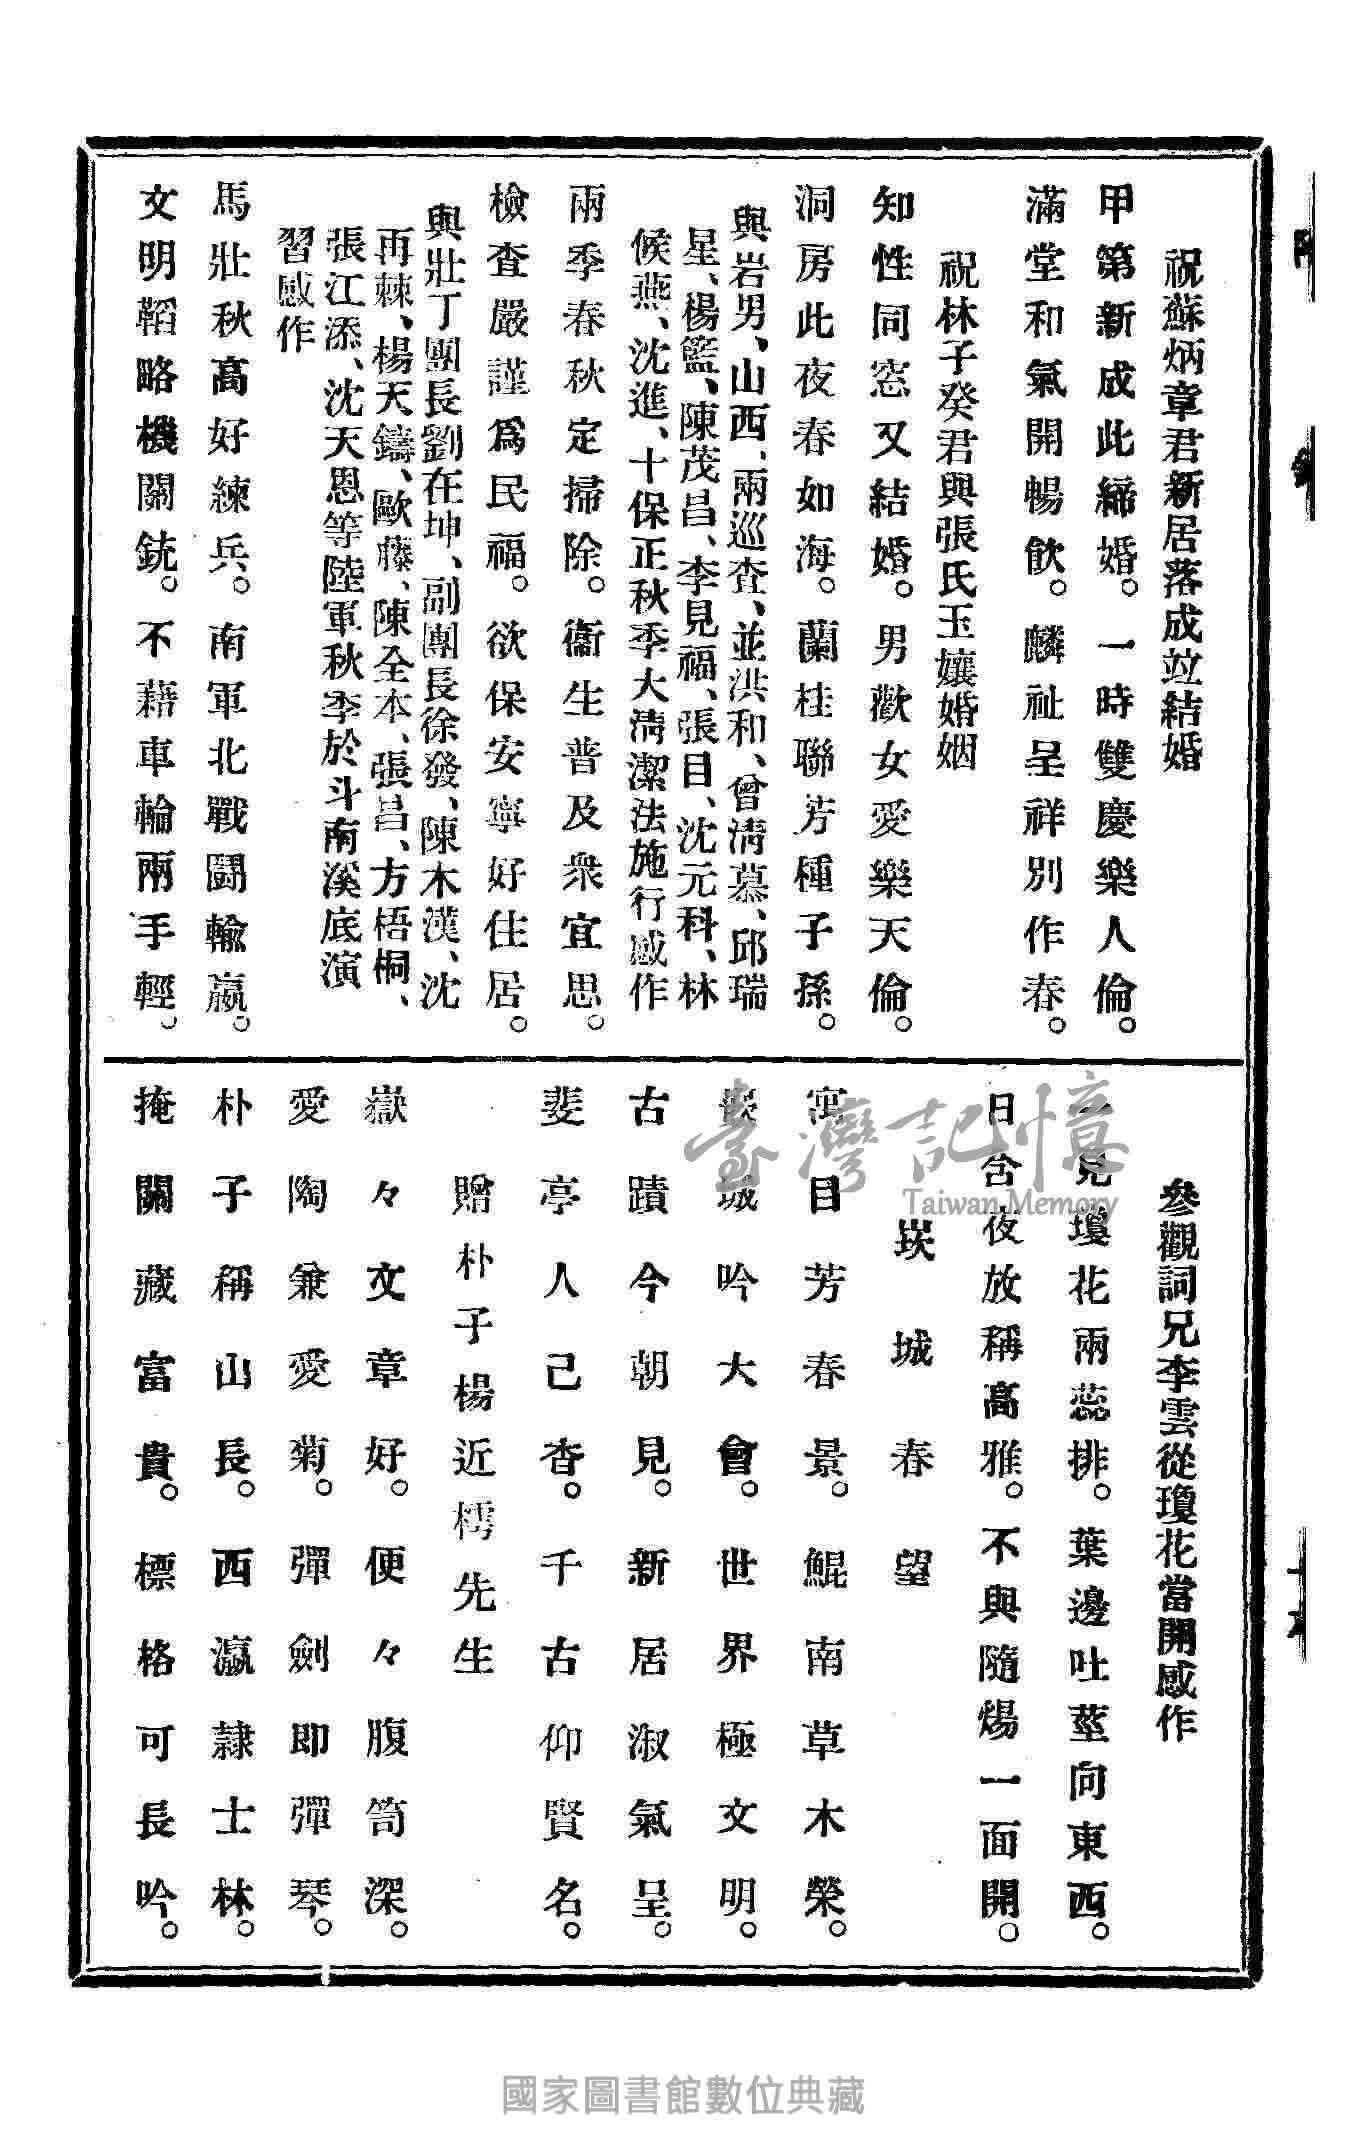 祝蘇炳章君新居落成竝結婚
甲第新成此締婚。一時雙慶樂人倫。
滿堂和氣開暢飲。麟趾呈祥別作春。
祝林子癸君與張氏玉孃婚姻
知性同窓又結婚。男歡女愛樂天倫。
洞房此夜春如海。蘭桂聯芳種子孫。
與岩男、山西、兩巡査、並洪和、曾淸慕、邱瑞
星、楊籃、陳茂昌、李見福、張目、沈元科、林
候燕、沈進、十保正秋季大淸潔法施行感作
兩季春秋定掃除。衞生普及衆宜思。
檢査嚴謹爲民福。欲保安寧好住居。
與壯丁團長劉在坤、副團長徐發、陳木漢、沈
再棘、楊天鑄、歐藤、陳全本、張昌、方梧桐、
張江添、沈天恩等陸軍秋季於斗南溪底演
習感作
馬壯秋高好練兵。南軍北戰鬪輸嬴。
文明韜略機關銃。不藉車輪兩手輕。
參觀詞兄李雲從瓊花當開感作
一見瓊花兩蕊排。葉邊吐莖向東西。
日含夜放稱高雅。不與隨煬一面開。
崁城春望
寓目芳春景。鯤南草木榮。
崁城吟大會。世界極文明。
古蹟今朝見。新居淑氣呈。
斐亭人已杳。千古仰賢名。
贈朴子楊近樗先生
嶽々文章好。便々腹笥深。
愛陶兼愛菊。彈劍即彈琴。
朴子稱山長。西瀛隷士林。
掩關藏富貴。標格可長吟。
臺灣記憶
Taiwan Memory
國家圖書館數位典藏